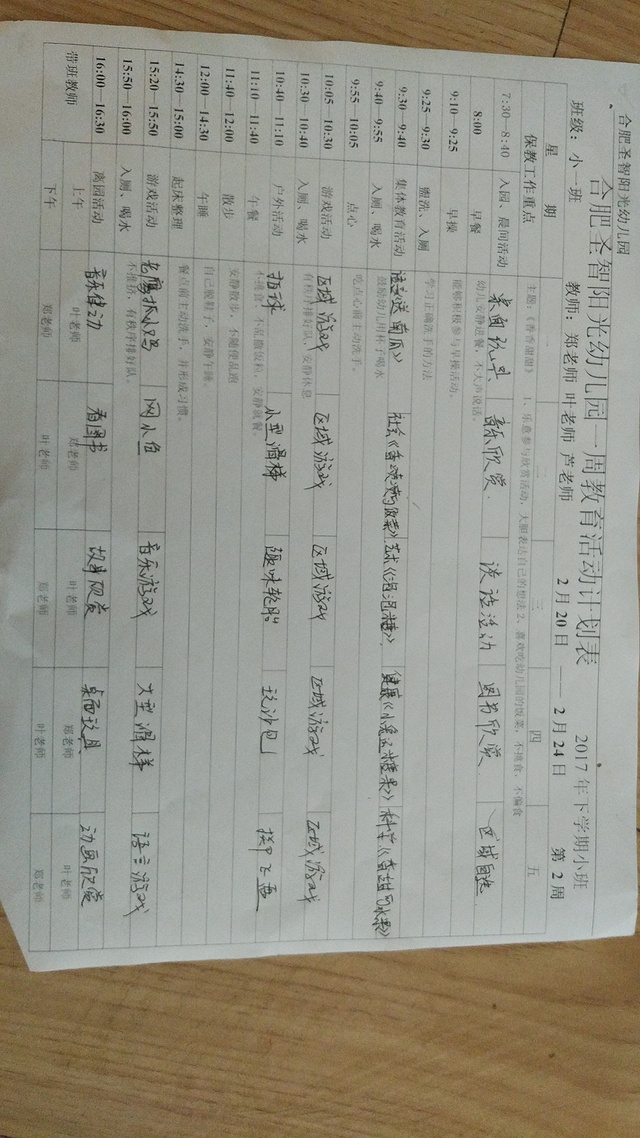 合肥圣智阳光幼儿园
合肥圣智阳光幼儿园一周教育活动计划表 2017年下学期小班
班级：小一班 教师：郑老师 叶老师 芦老师 2月20日——2月24日 第2周
星期 一 二 三 四 五
保教工作重点 主题：《香香甜甜》 1、乐意参与欣赏活动，大胆表达自己的想法2、喜欢吃幼儿园的饭菜，不挑食、不偏食
7:30—8:40 入园、晨间活动 桌面玩具 音乐欣赏 谈话活动 图书欣赏 区域自选
8:00 早餐 幼儿安静进餐，不大声说话。
9:10—9:25 早操 能够积极参与早操活动。
9:25—9:30 盥洗、入厕 学习正确洗手的方法
9:30—9:40 集体教育活动 南瓜》 社会《 艺术《泡泡糖》 健康《小兔运糖果》 科学《香甜的水果》
9:40—9:55 入厕、喝水 鼓励幼儿用杯子喝水
9:55—10:05 点心 吃点心前主动洗手。
10:05—10:30 游戏活动 区域游戏 区域游戏 区域游戏 区域游戏 区域游戏
10:30—10:40 入厕、喝水 有秩序排好队，安静休息
10:40—11:10 户外活动 拍球 小型滑梯 趣味轮胎 玩沙包
11:10—11:40 午餐 不挑食，不乱撒饭粒，安静就餐。
11:40—12:00 散步 安静散步，不随便乱跑
12:00—14:30 午睡 自己脱鞋子，安静午睡。
14:30—15:00 起床整理 餐点前主动洗手，并形成习惯。
15:20—15:50 游戏活动 老鹰抓小鸡 网小鱼 音乐游戏 大型滑梯 语言游戏
15:50—16:00 入厕、喝水 不推挤，有秩序排好队。
16:00—16:30 离园活动 音乐律动 看图书 故事欣赏 桌面玩具 动画欣赏
带班教师 上午 叶老师 郑老师 叶老师 郑老师 叶老师
下午 郑老师 叶老师 郑老师 叶老师 郑老师